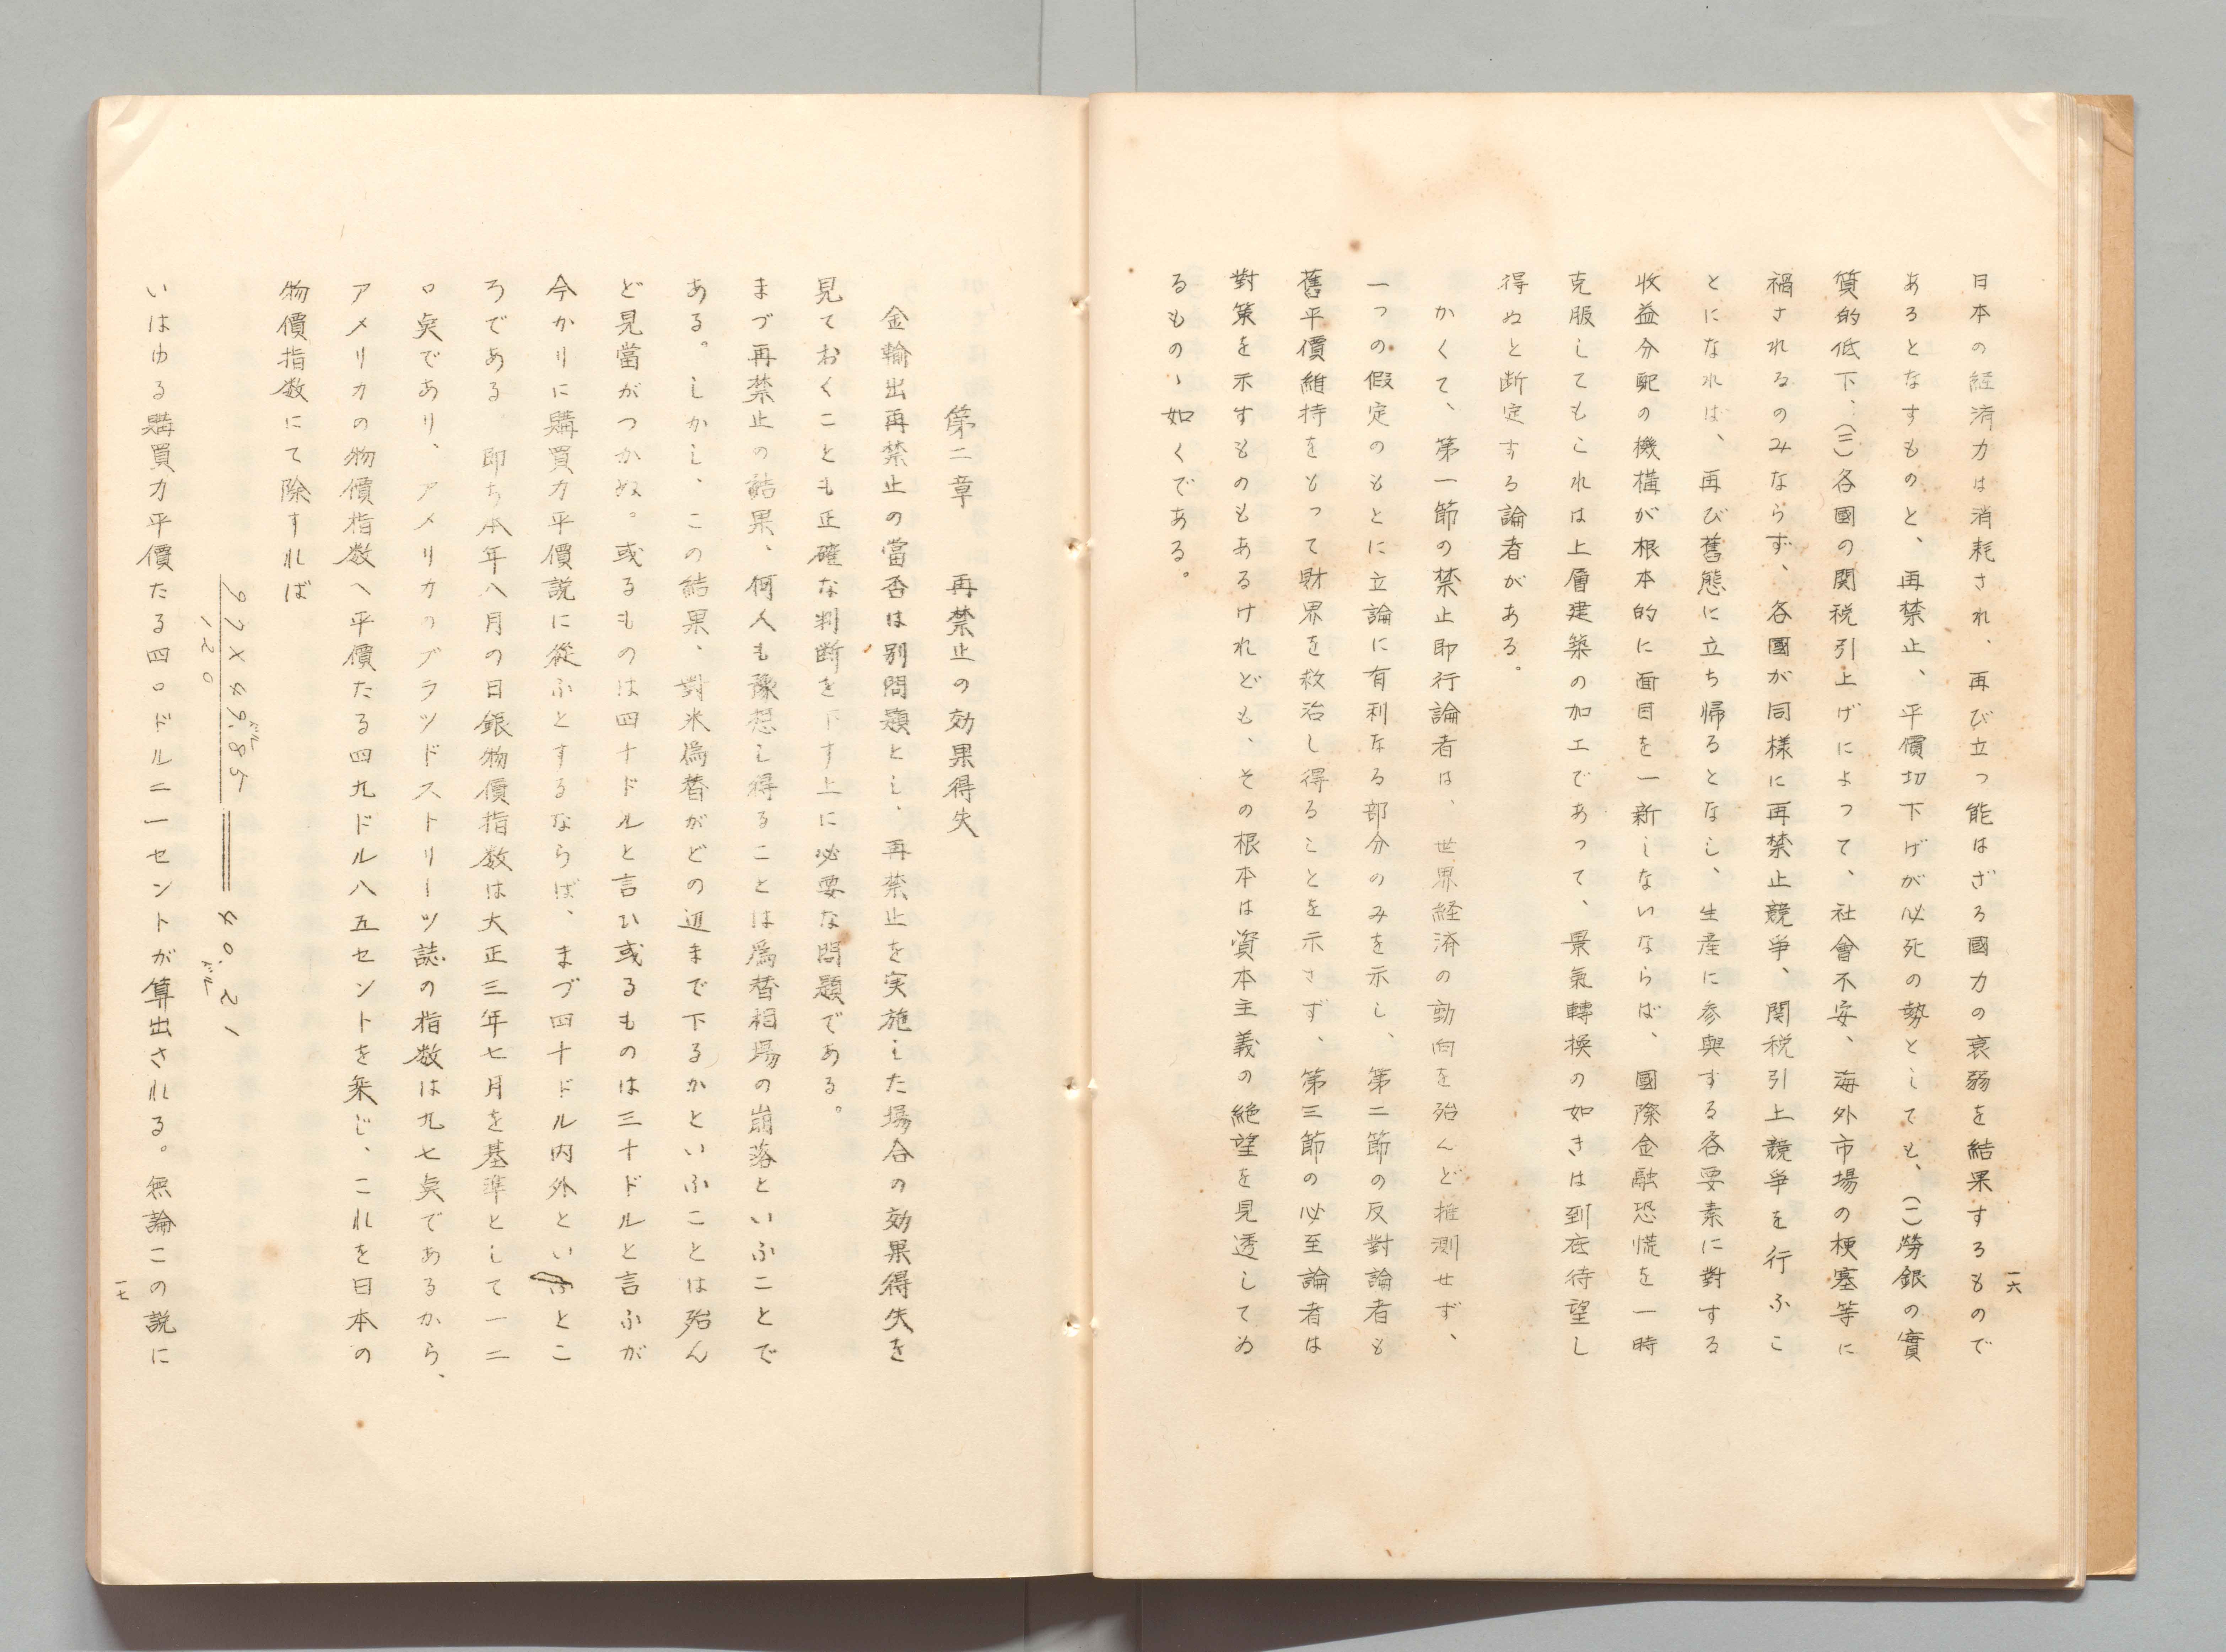 日本の経済力は消耗され、再び立つ能はざる國力の衰弱を結果するもので
あるとなすものと、再禁止、平價切下げが必死の勢としても、(二)勞銀の實
質的低下、(三)各國の関税引上げによつて、社會不安、海外市場の梗塞等に
禍されるのみならず、各國が同様に再禁止競争、関税引上競争を行ふこ
とになれは、再び舊態に立ち帰るとなし、生産に参與する各要素に對する
收益分配の機構が根本的に面目を一新しないならば、國際金融恐慌を一時
克服してもこれは上層建築の加工であつて、景氣轉換の如きは到底待望し
得ぬと断定する論者がある。
かくて、第一節の禁止即行論者は、世界経済の動向を殆んど推測せず、
一つの假定のもとに立論に有利なる部分のみを示し、第二節の反對論者も
舊平價維持をもつて財界を救治し得ることを示さず、第三節の必至論者は
對策を示すものもあるけれども、その根本は資本主義の絶望を見透してゐ
るものゝ如くである。
一六
第二章　再禁止の効果得失
金輸出再禁止の當否は別問題とし、再禁止を実施した場合の効果得失を
見ておくことも正確な判断を下す上に必要な問題である。
まづ再禁止の結果、何人も豫想し得ることは爲替相場の崩落といふことで
ある。しかし、この結果、對米爲替がどの辺まで下るかといふことは殆ん
ど見當がつかぬ。或るものは四十ドルと言ひ或るものは三十ドルと言ふが
今かりに購買力平價説に從ふとするならば、まづ四十ドル内外といふとこ
ろである　即ち本年八月の日銀物價指数は大正三年七月を基準として一二
〇奌であり、アメリカのブラツドストリーツ誌の指数は九七奌であるから、
アメリカの物價指数へ平價たる四九ドル八五セントを乗じ、これを日本の
物價指数にて除すれば
97×49.85ドル
120
＝40.21ドル
いはゆる購買力平價たる四〇ドル二一セントが算出される。無論この説に
一七